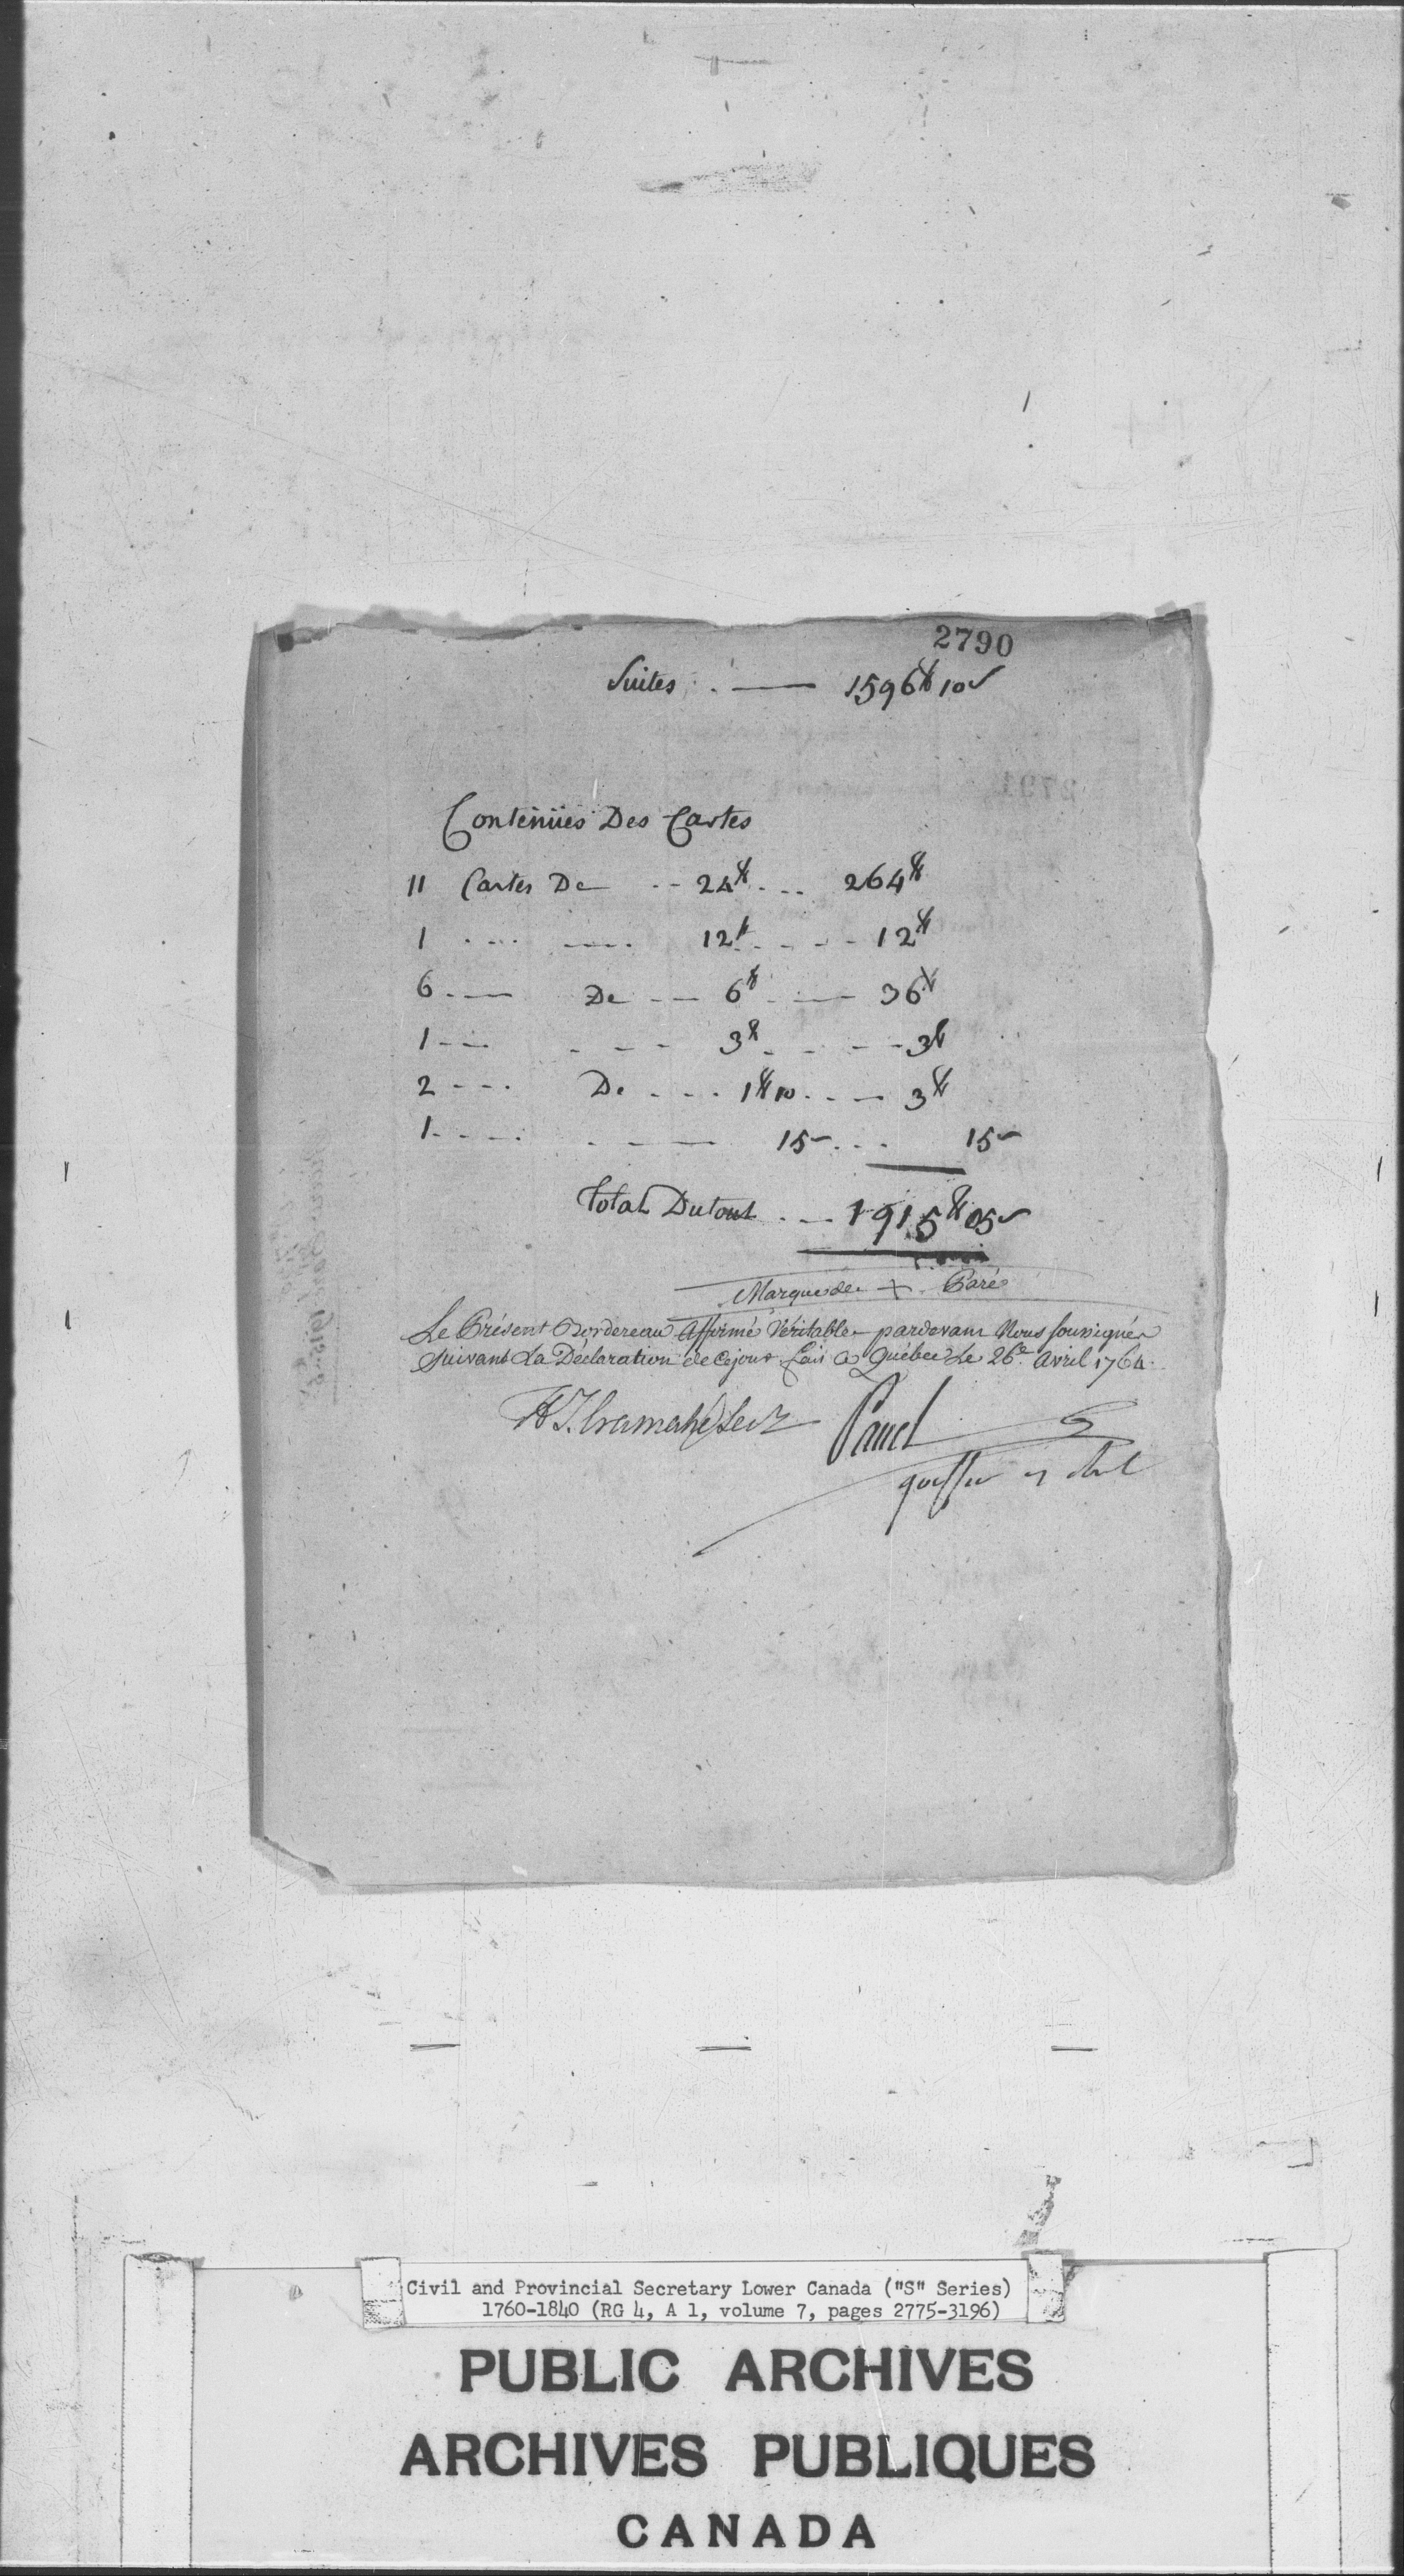 2790
Suites . — 1596₶ 10s
Contenües Des Cartes
11 Cartes De -- 24₶ ... 264₶
1 .... .... 12₶ .... 12₶
6 ---- De --- 6₶ ---- 36₶
1 --- - - - 3₶ - - - 3₶
2 --- De ... 1₶10 ... 3₶
1 .... - - - 15s ... 15s
Total Dutout . — 1915₶ 05s
Marque de + Paré
Le Présent Bordereau Affirmé Véritable pardevant Nous soussignés
Suivant La Déclaration de Cejour fait à Québec Le 26e Avril 1764.
H T. Cramahé Secr
Panet
greffier
Civil and Provincial Secretary Lower Canada ("S" Series)
1760-1840 (RG 4, A 1, volume 7, pages 2775-3196)
PUBLIC ARCHIVES
ARCHIVES PUBLIQUES
CANADA